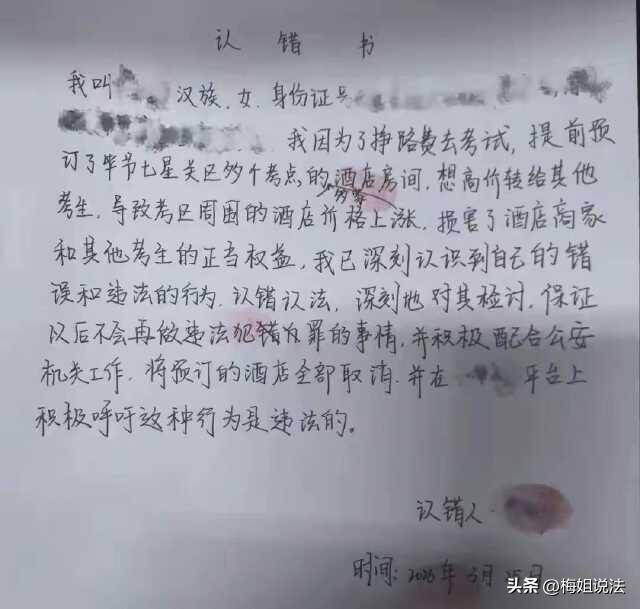 认 错 书
我叫 汉族、女、身份证号
我因为了挣路费去考试，提前预
订了毕节七星关区多个考点的酒店房间，想高价转给其他
旁等
考生，导致考区周围的酒店价格上涨，损害了酒店商家
和其他考生的正当权益，我已深刻认识到自己的错
误和违法的行为，认错认法，深刻地对其检讨，保证
以后不会再做违法犯错犯罪的事情，并积极配合公安
机关工作，将预订的酒店全部取消，并在 平台上
积极呼吁这种行为是违法的。
认错人：
时间：年 月 日
头条 @梅姐说法